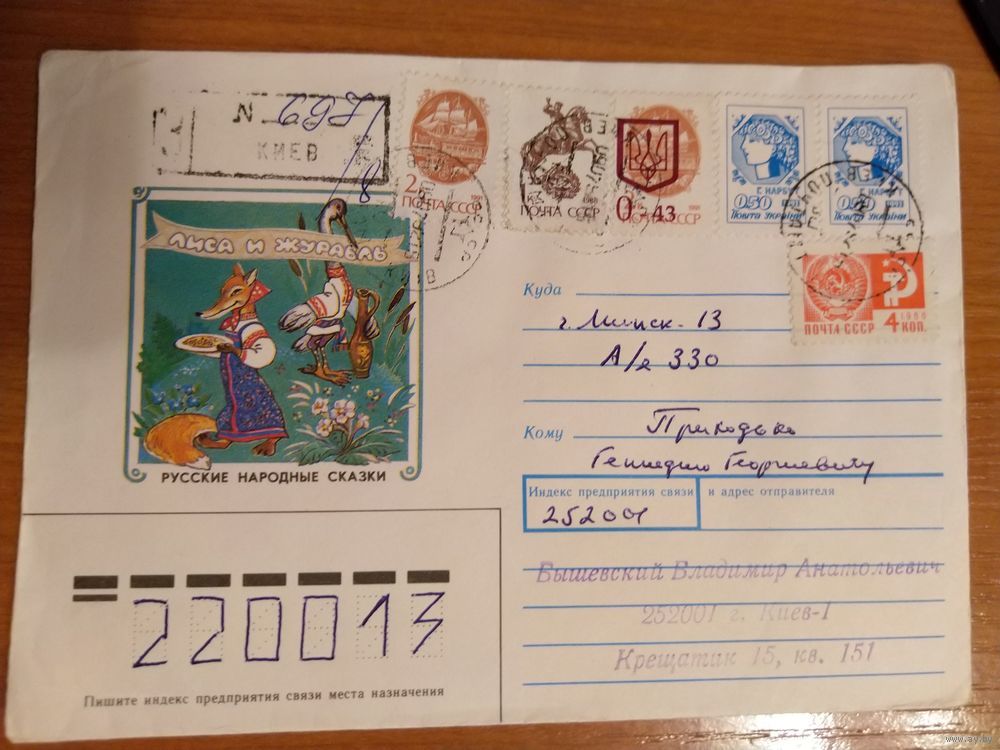 N
КИЕВ
2к 1991
ПОЧТА СССР
1988
ПОЧТА СССР
0-43
Г. НАРБУТ
0,50
Пошта України
Г. НАРБУТ
0,50
Пошта України
ПОЧТА СССР
1966
4 КОП.
ЛИСА И ЖУРАВЛЬ
РУССКИЕ НАРОДНЫЕ СКАЗКИ
Куда
г. Минск-13
А/я 330
Кому
Приходько
Геннадию Георгиевичу
Индекс предприятия связи и адрес отправителя
252001
Бышевский Владимир Анатольевич
252001 г. Киев-1
Крещатик 15, кв. 151
220013
Пишите индекс предприятия связи места назначения
www.ay.by